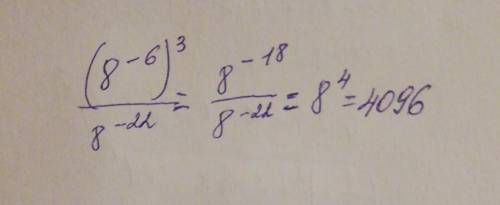 (8^-6)^3 / 8^-22 = 8^-18 / 8^-22 = 8^4 = 4096